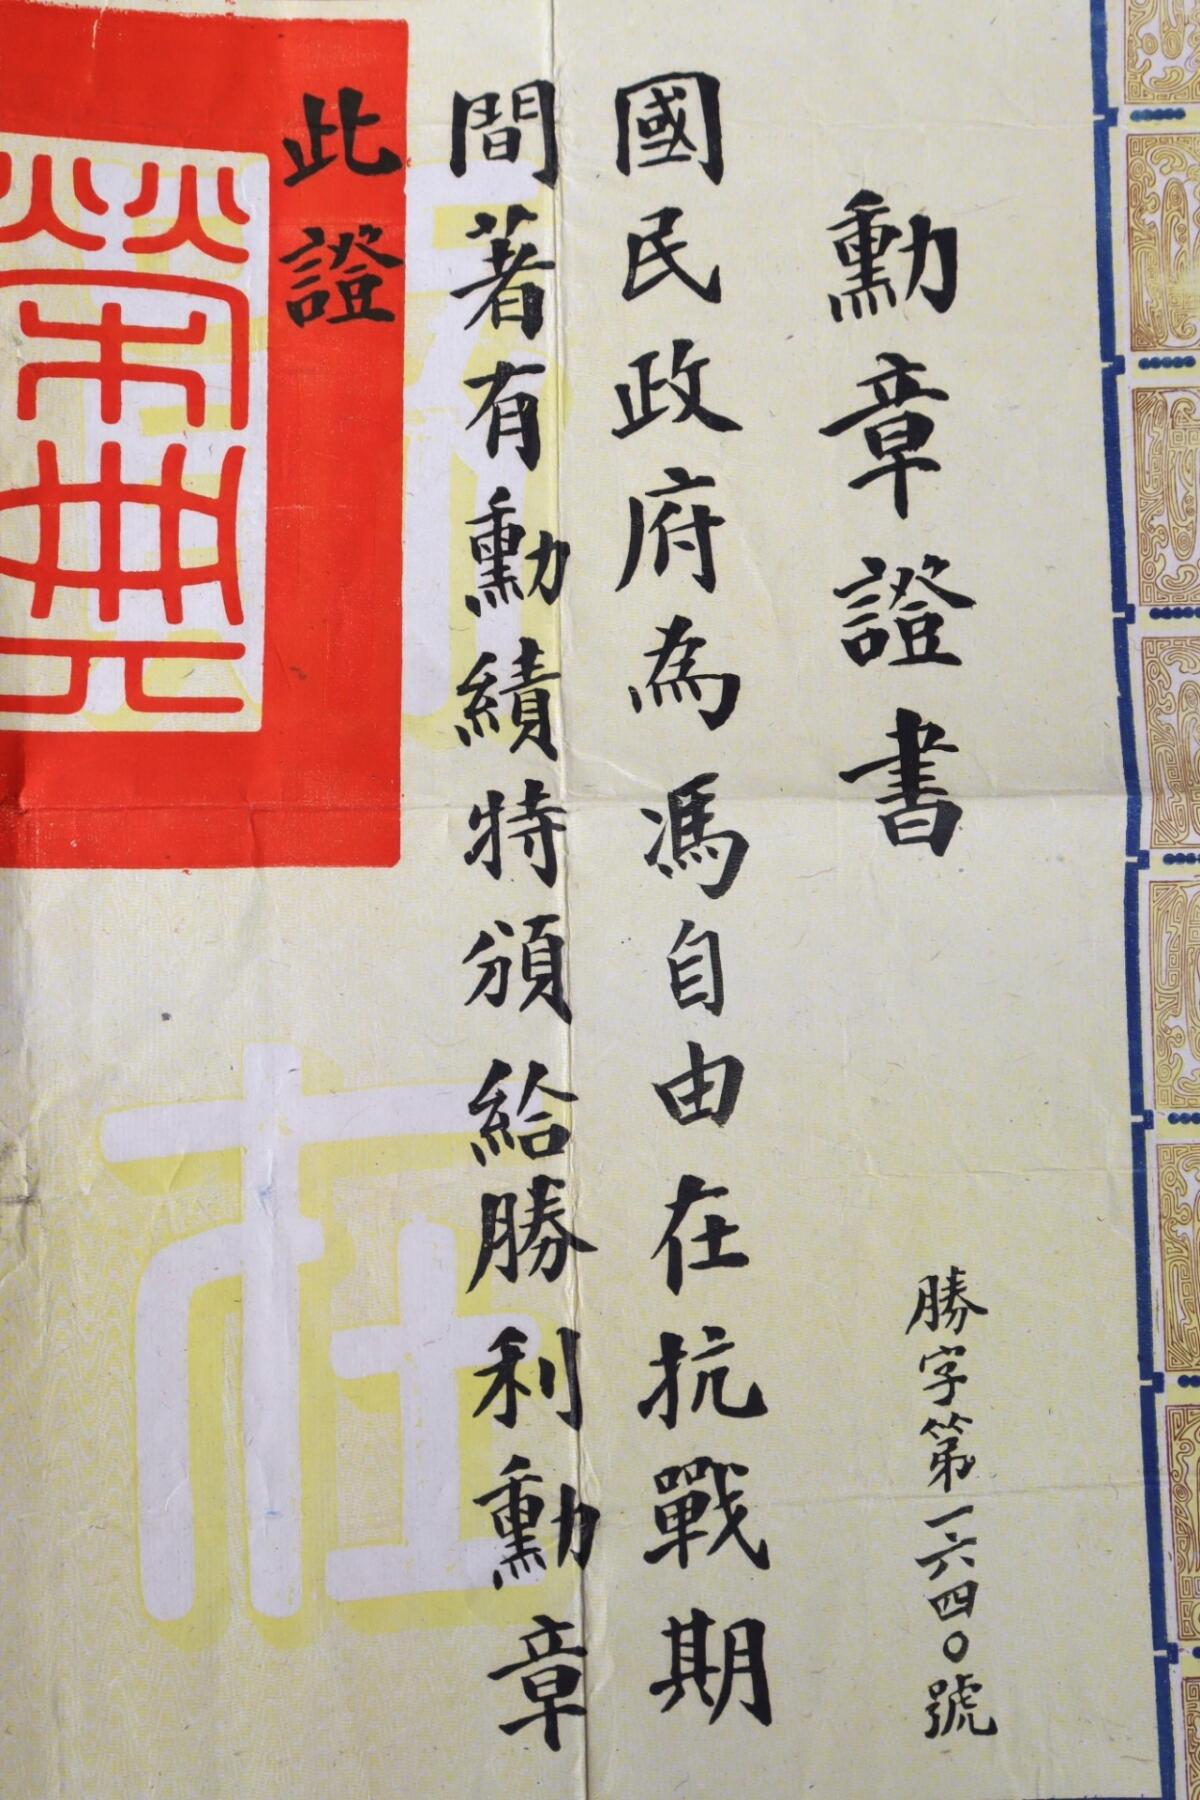 勳章證書
勝字第一六四〇號
國民政府為馮自由在抗戰期
間著有勳績特頒給勝利勳章
此證
在